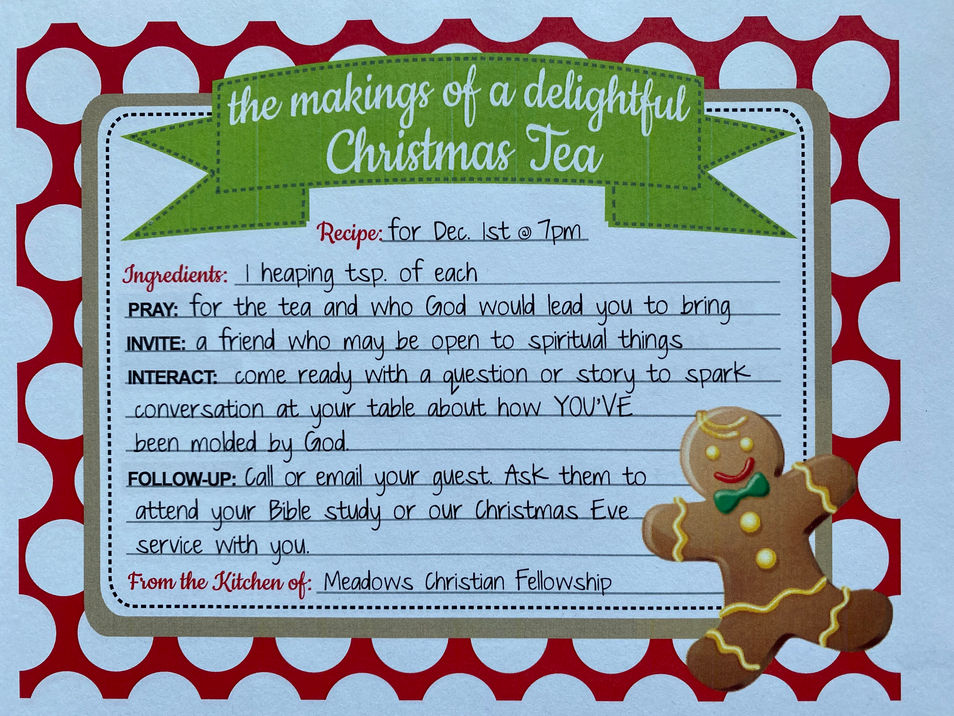 the makings of a delightful
Christmas Tea
Recipe: for Dec. 1st @ 7pm
Ingredients: 1 heaping tsp. of each
PRAY: for the tea and who God would lead you to bring
INVITE: a friend who may be open to spiritual things
INTERACT: come ready with a question or story to spark
conversation at your table about how YOU'VE
been molded by God.
FOLLOW-UP: Call or email your guest. Ask them to
attend your Bible study or our Christmas Eve
service with you.
From the Kitchen of: Meadows Christian Fellowship